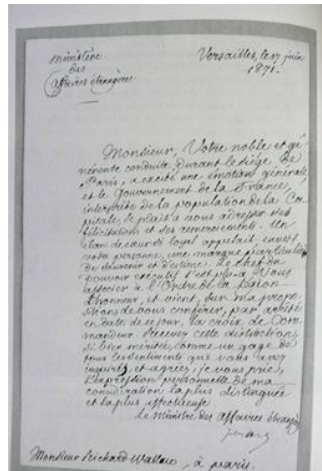 Ministère
des
Affaires étrangères.
Versailles, le 17 juin
1871.
Monsieur, Votre noble et gé-
néreuse conduite, durant le siège de
Paris, a excité une émotion générale,
et le Gouvernement de la France,
interprète de la population de la Ca-
pitale, se plaît à vous adresser ses
félicitations et ses remerciements. Un
élan de cœur si loyal appelait envers
votre personne, une marque particulière
de souvenir et d'estime. Le chef du
pouvoir exécutif s'est plu à Vous
associer à l'Ordre de la Légion
d'honneur, et vient, sur ma propo-
sition, de vous conférer, par arrêté
en date de ce jour, la croix de Com-
mandeur. Recevez cette distinction,
si bien méritée, comme un gage de
tous les sentiments que vous avez
inspirés, et agréez, je vous prie,
l'expression personnelle de ma
considération la plus distinguée
et la plus affectueuse.
Le Ministre des affaires étrangères
Monsieur Richard Wallace, à Paris.